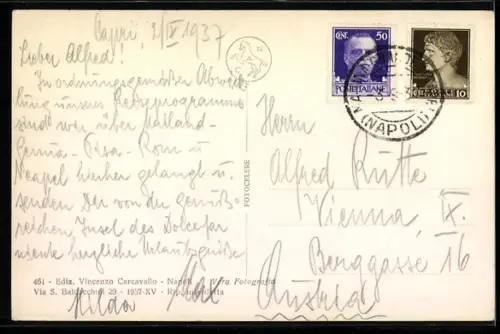 Capri, 2/V 1937
Lieber Alfred!
In ordnungsgemäßer Abwick
lung unseres Reiseprogramms
sind wir über Mailand-
Genua - Pisa - Rom u
Neapel hierher gelangt u.
senden Dir von der genuß-
reichen Insel des Dolcefar
niente herzliche Urlaubsgrüße
Hilda Max
461 - Ediz. Vincenzo Carcavallo - Napoli Vera Fotografia
Via S. Baldacchini 29 - 1937-XV - Rip. interdetta
FOTOCELERE
CENT. 50
POSTE ITALIANE
10
(NAPOLI)
Herrn
Alfred Rutte
Vienna, IX.
Berggasse 16
Austria